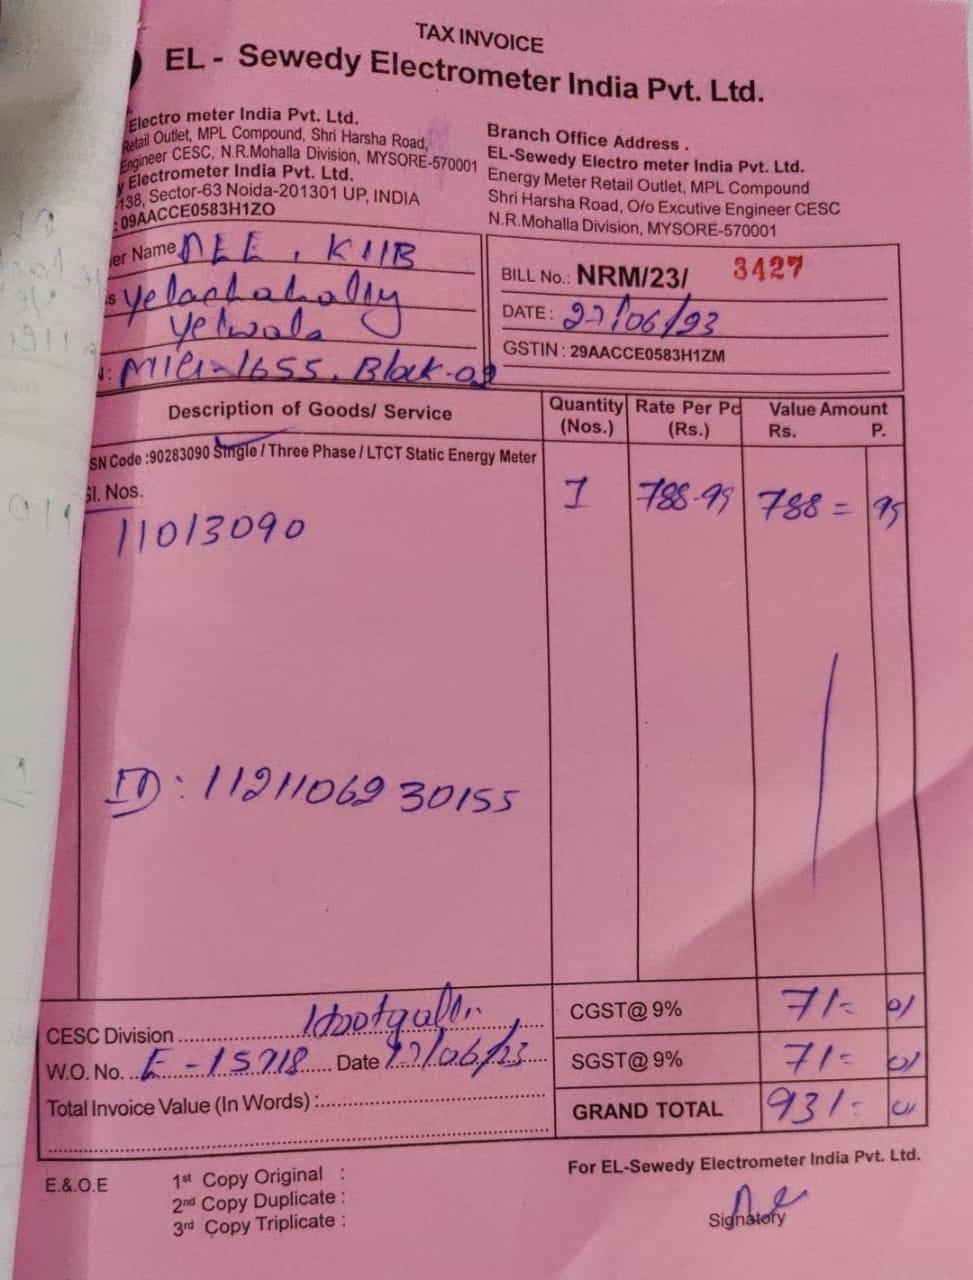 TAX INVOICE
EL - Sewedy Electrometer India Pvt. Ltd.
Electro meter India Pvt. Ltd.
Retail Outlet, MPL Compound, Shri Harsha Road,
Engineer CESC, N.R.Mohalla Division, MYSORE-570001
y Electrometer India Pvt. Ltd.
-138, Sector-63 Noida-201301 UP, INDIA
: 09AACCE0583H1ZO
Branch Office Address .
EL-Sewedy Electro meter India Pvt. Ltd.
Energy Meter Retail Outlet, MPL Compound
Shri Harsha Road, O/o Excutive Engineer CESC
N.R.Mohalla Division, MYSORE-570001
er Name AEE, KHB
s Yelachahally
Yelwala
: MIG-1655, Block-02
BILL No.: NRM/23/ 3427
DATE : 27/06/23
GSTIN : 29AACCE0583H1ZM
Description of Goods/ Service Quantity (Nos.) Rate Per Pc (Rs.) Value Amount Rs. P.
SN Code :90283090 Single / Three Phase / LTCT Static Energy Meter
Sl. Nos.
11013090 1 788.99 788 = 99
ID : 11211069 30155
CESC Division Hootgalli
W.O. No. E-15718 Date 27/06/23
Total Invoice Value (In Words) :
CGST@ 9% 71-
SGST@ 9% 71-
GRAND TOTAL 931-
E.&.O.E
1st Copy Original :
2nd Copy Duplicate :
3rd Copy Triplicate :
For EL-Sewedy Electrometer India Pvt. Ltd.
Signatory